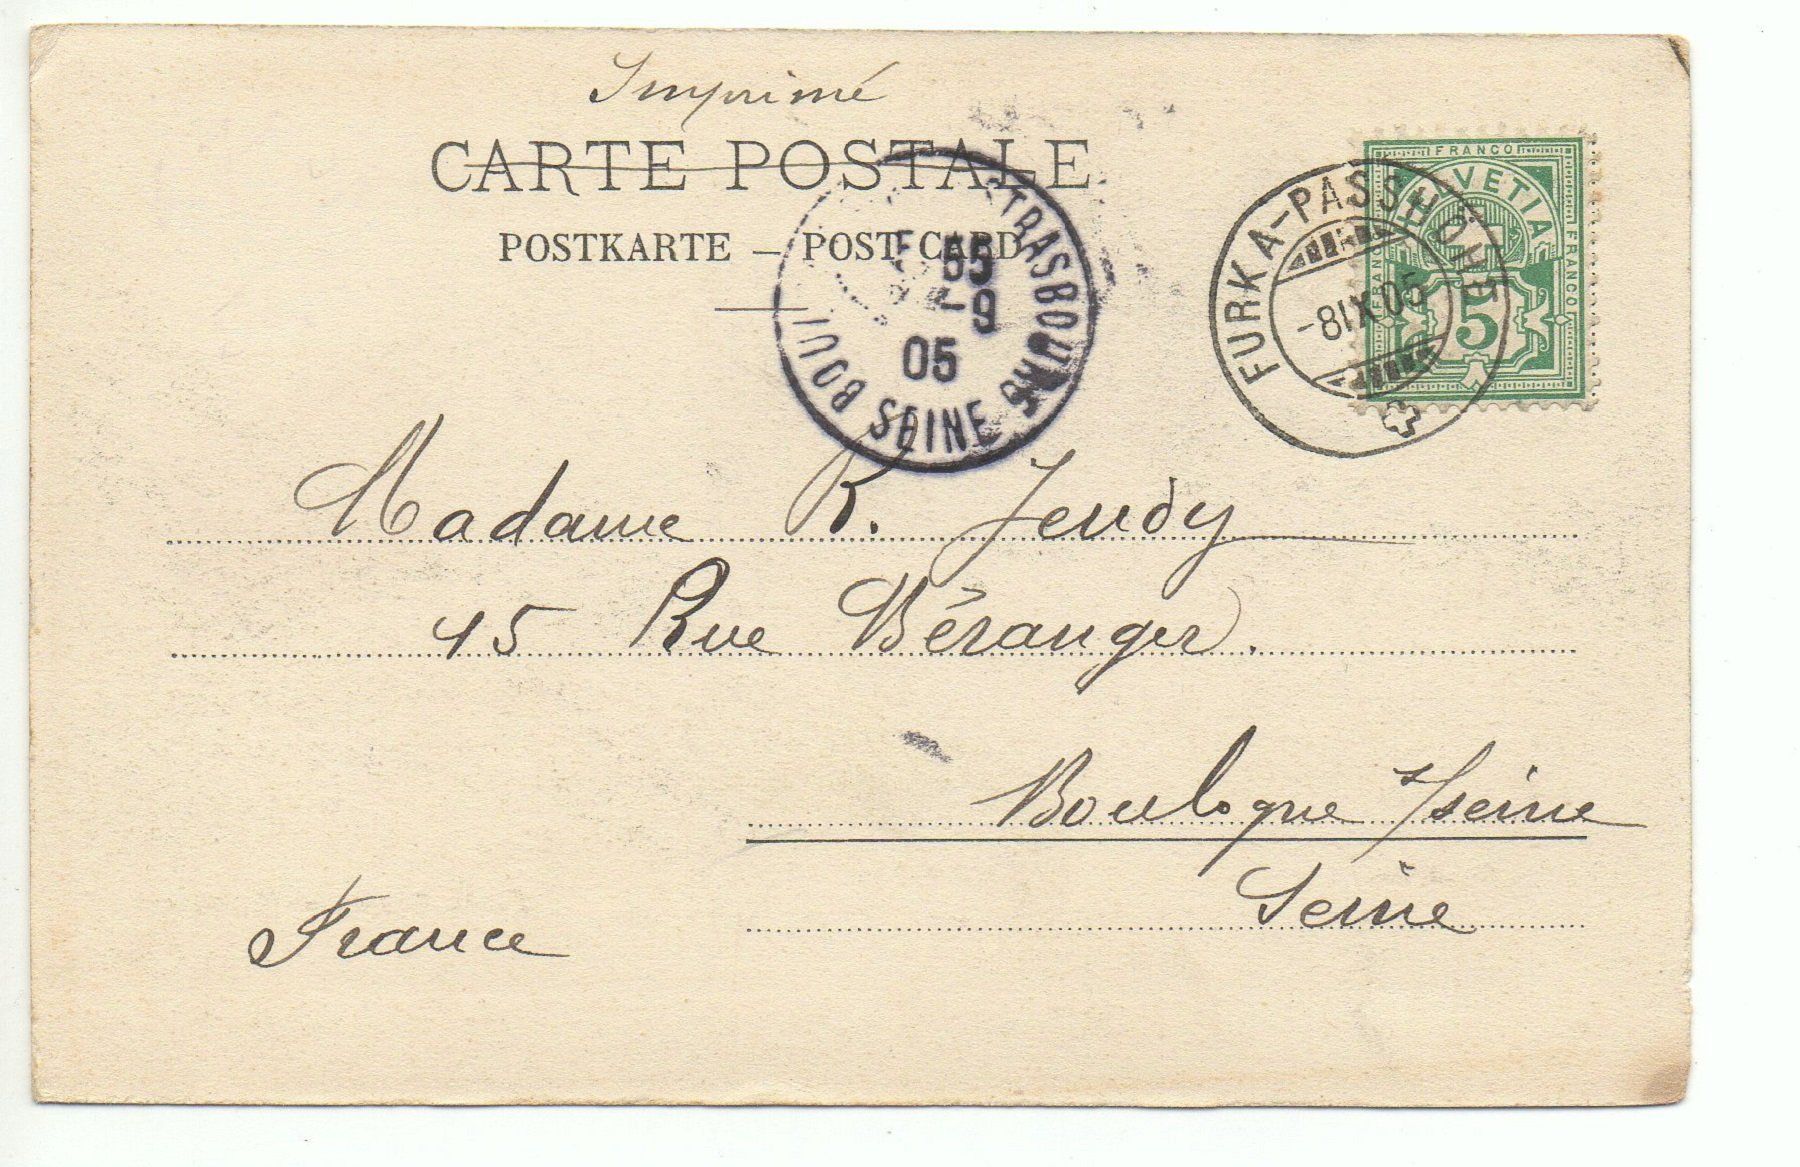 Imprimé
CARTE POSTALE
POSTKARTE – POST CARD
FRANCO
HELVETIA
FRANCO
FRANCO
5
FURKA-PASSHÖHE
-8 IX 05
STRASBOURG
55
-9
05
BOUL SEINE
Madame R. Jeudy
15 Rue Béranger.
Boulogne s/seine
Seine
France